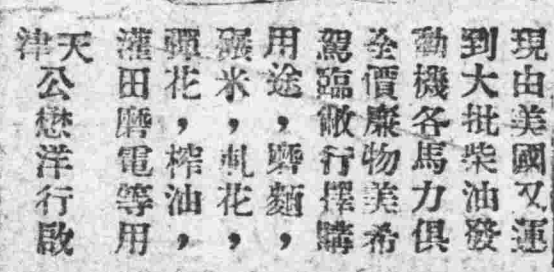 現由美國又運
到大批柴油發
動機各馬力俱
全價廉物美希
駕臨敝行擇購
用途，磨麵，
碾米，軋花，
彈花，榨油，
灌田磨電等用
天津公懋洋行啟